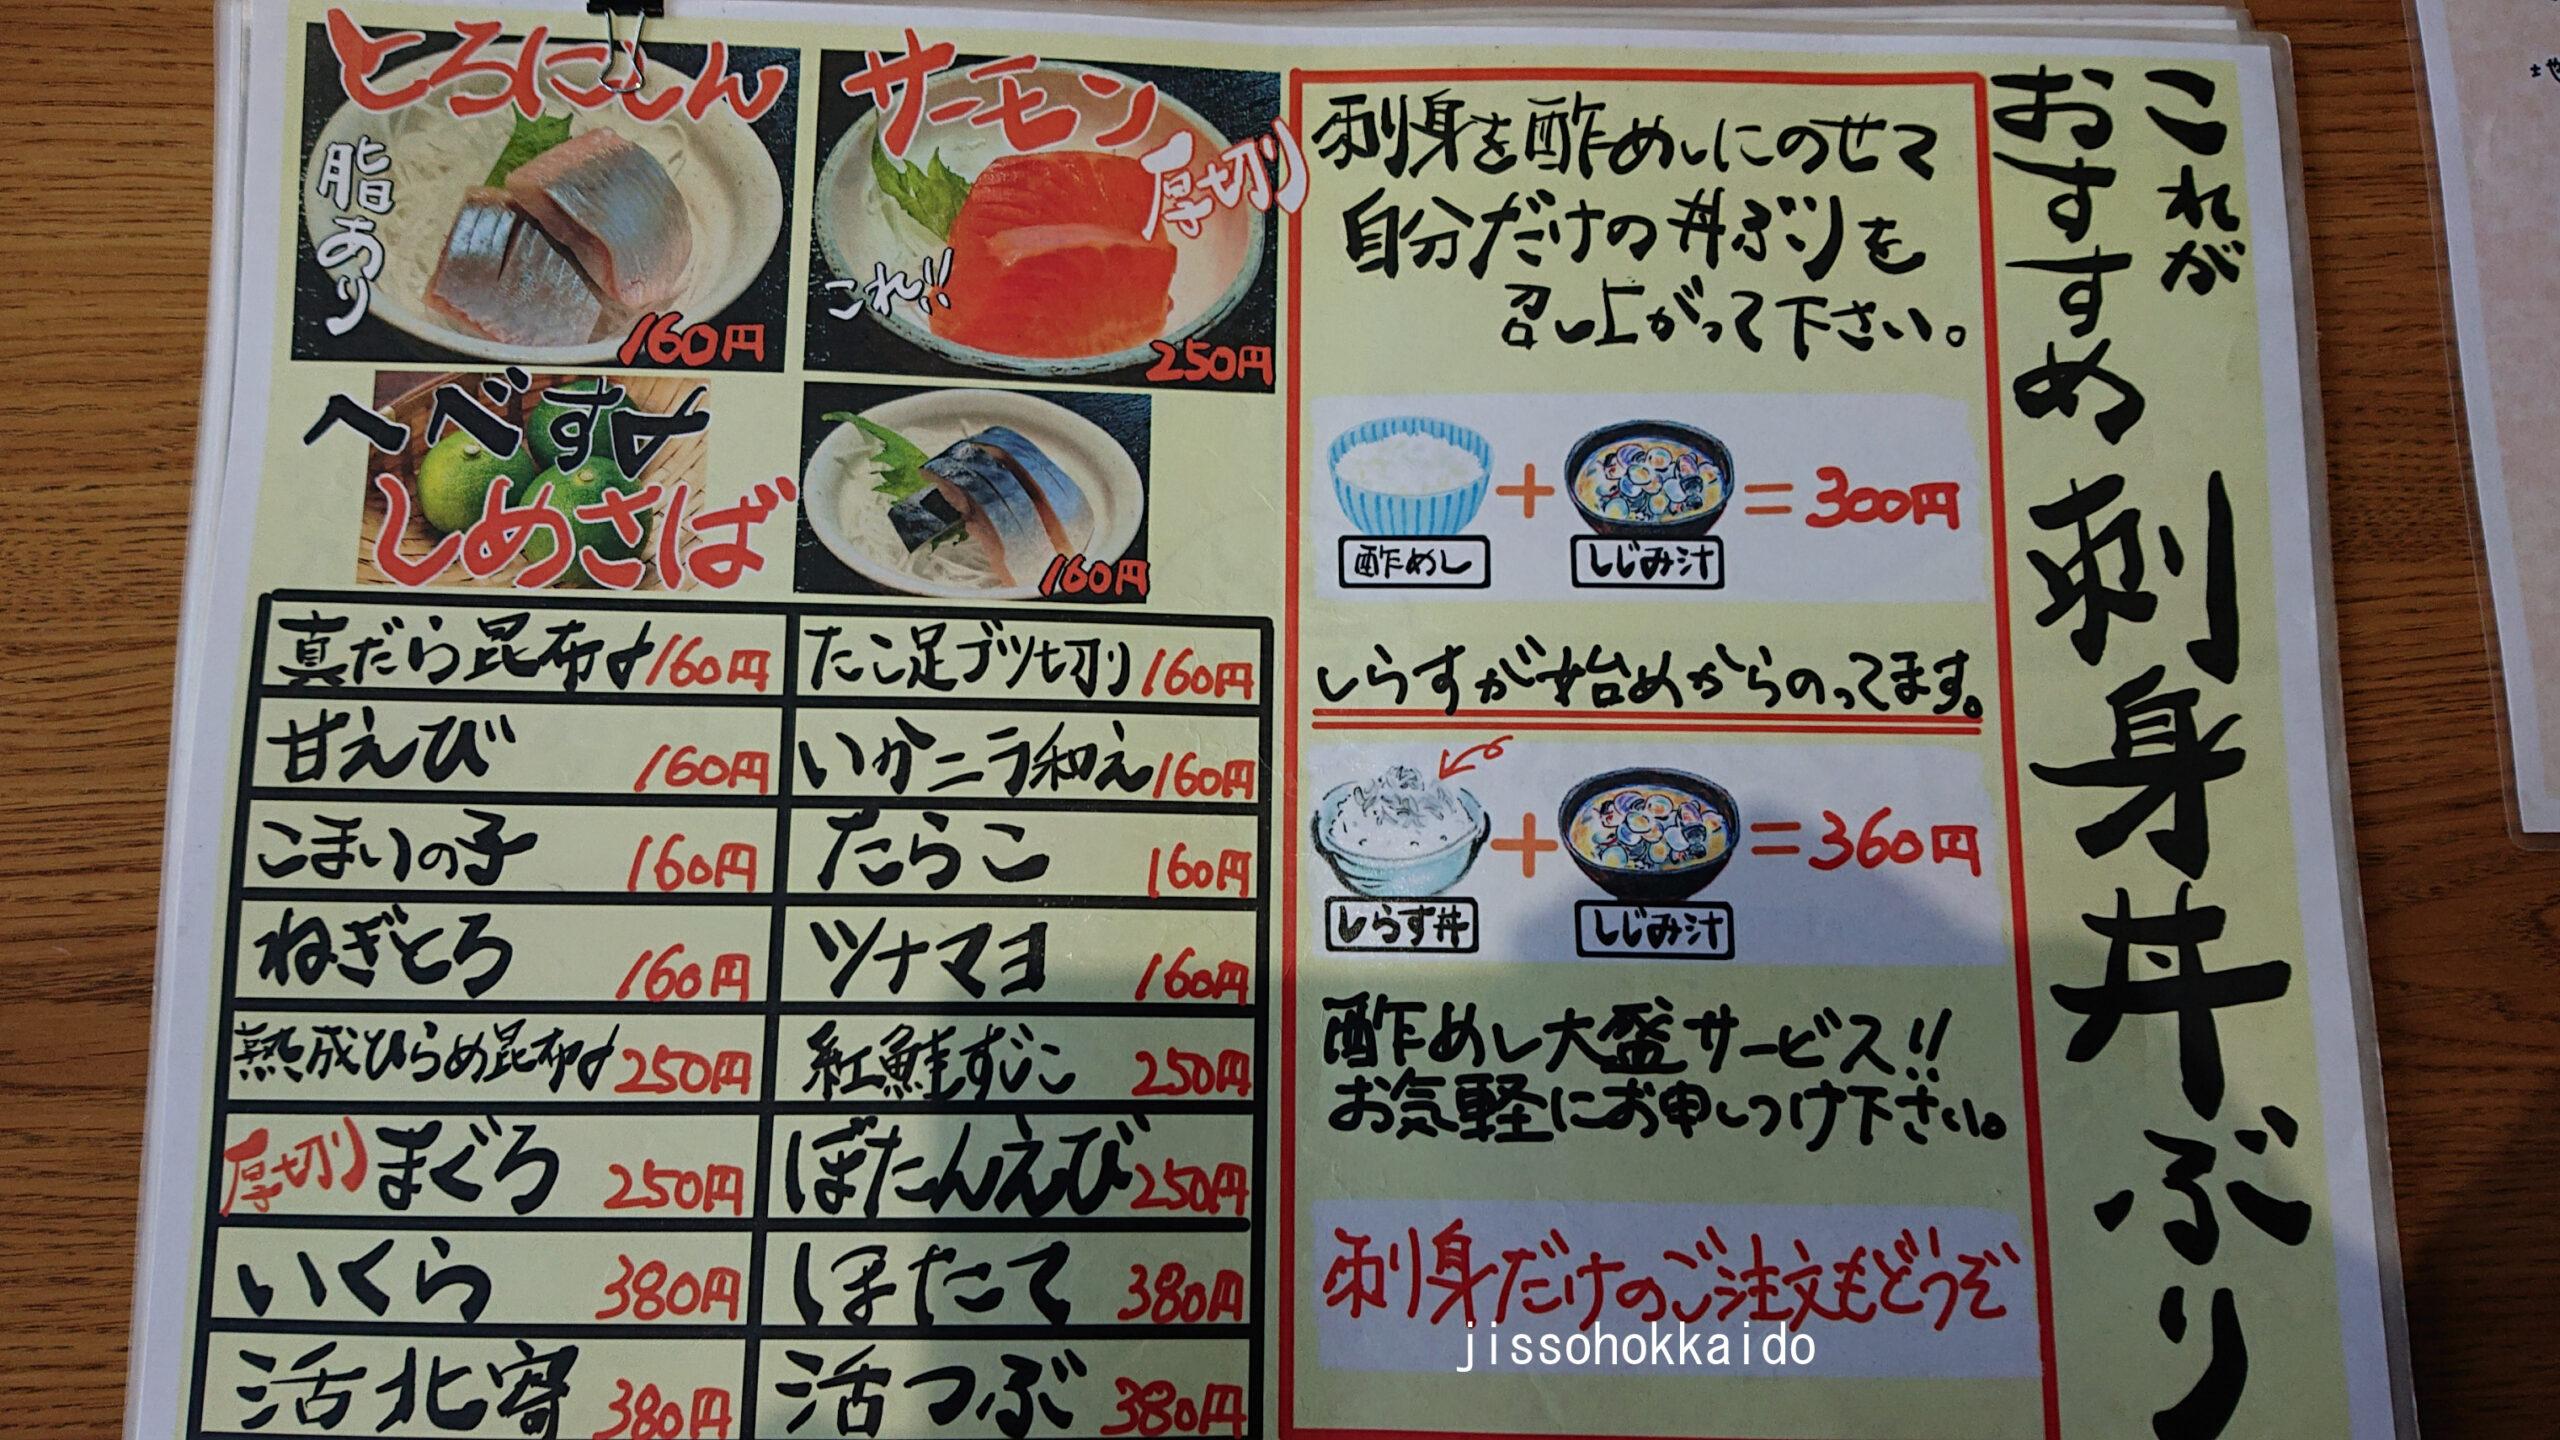 これが
おすすめ 刺身丼ぶり
刺身を酢めしにのせて
自分だけの丼ぶりを
召し上がって下さい。
＋ ＝ 300円
酢めし しじみ汁
しらすが始めからのってます。
＋ ＝ 360円
しらす丼 しじみ汁
酢めし大盛サービス!!
お気軽にお申しつけ下さい。
刺身だけのご注文もどうぞ
とろにしん
脂あり
160円
サーモン
厚切り
これ!!
250円
へべす〆
しめさば
160円
真だら昆布〆 160円
たこ足ブツ切り 160円
甘えび 160円
いかニラ和え 160円
こまいの子 160円
たらこ 160円
ねぎとろ 160円
ツナマヨ 160円
熟成ひらめ昆布〆 250円
紅鮭すじこ 250円
厚切り まぐろ 250円
ぼたんえび 250円
いくら 380円
ほたて 380円
活北寄 380円
活つぶ 380円
jissohokkaido